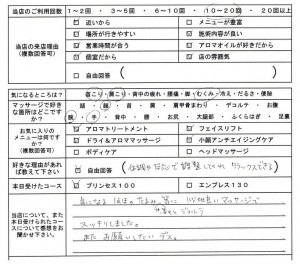 当店のご利用回数 1～2回・3～5回・6～10回・10～20回・20回以上
当店の来店理由
(複数回答可)
近いから メニューが豊富
場所が行きやすい 施術内容が良い
営業時間が合う アロマオイルが好きだから
個室だから 店の雰囲気
自由回答 ( )
気になるところは？ 首こり・肩こり・背中の疲れ・腰痛・脚・むくみ・冷え・だるさ・便秘
マッサージで好きな箇所はどこですか？
頭・顔・首・肩・肩甲骨まわり・デコルテ・お腹
腕・手・背中・腰・お尻・大腿部・ふくらはぎ・足裏
お気に入りのメニューは何ですか？
(複数回答可)
アロマトリートメント フェイスリフト
ドライ&アロママッサージ 小顔アンチエイジングケア
ボディケア ヘッドマッサージ
好きな理由があれば教えて下さい
自由回答 ( 調整してくれ リラックスできる )
本日受けたコース プリンセス100 エンプレス130
当店について、また本日受けられたコースについて感想をお聞かせ下さい。
気になる マッサージで
スッキリしました。
また お願いしたい デス。